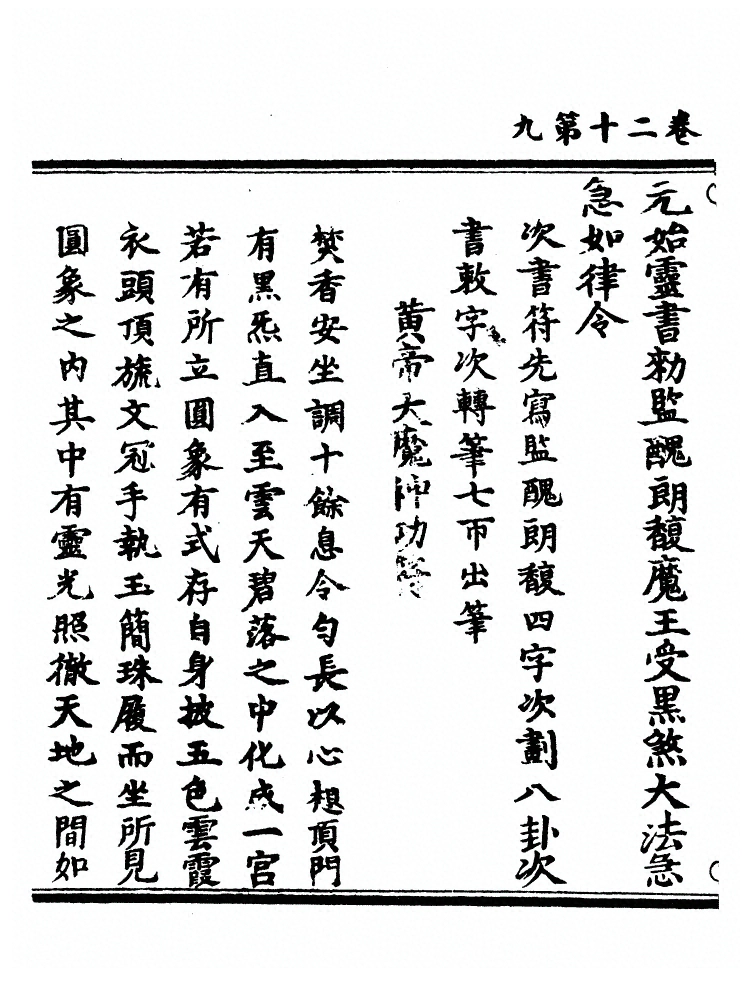 卷二十第九
元始靈書勑監醜朗馥魔王受黒煞大法急
急如律令
次書符先寫監醜朗馥四字次劃八卦次
書敕字次轉筆七帀出筆
黃帝大魔神功符
焚香安坐調十餘息令匀長以心想頂門
有黒炁直入至雲天碧落之中化成一宫
若有所立圓象有式存自身披五色雲霞
衣頭頂旒文冠手執玉簡珠履而坐所見
圓象之内其中有靈光照徹天地之間如